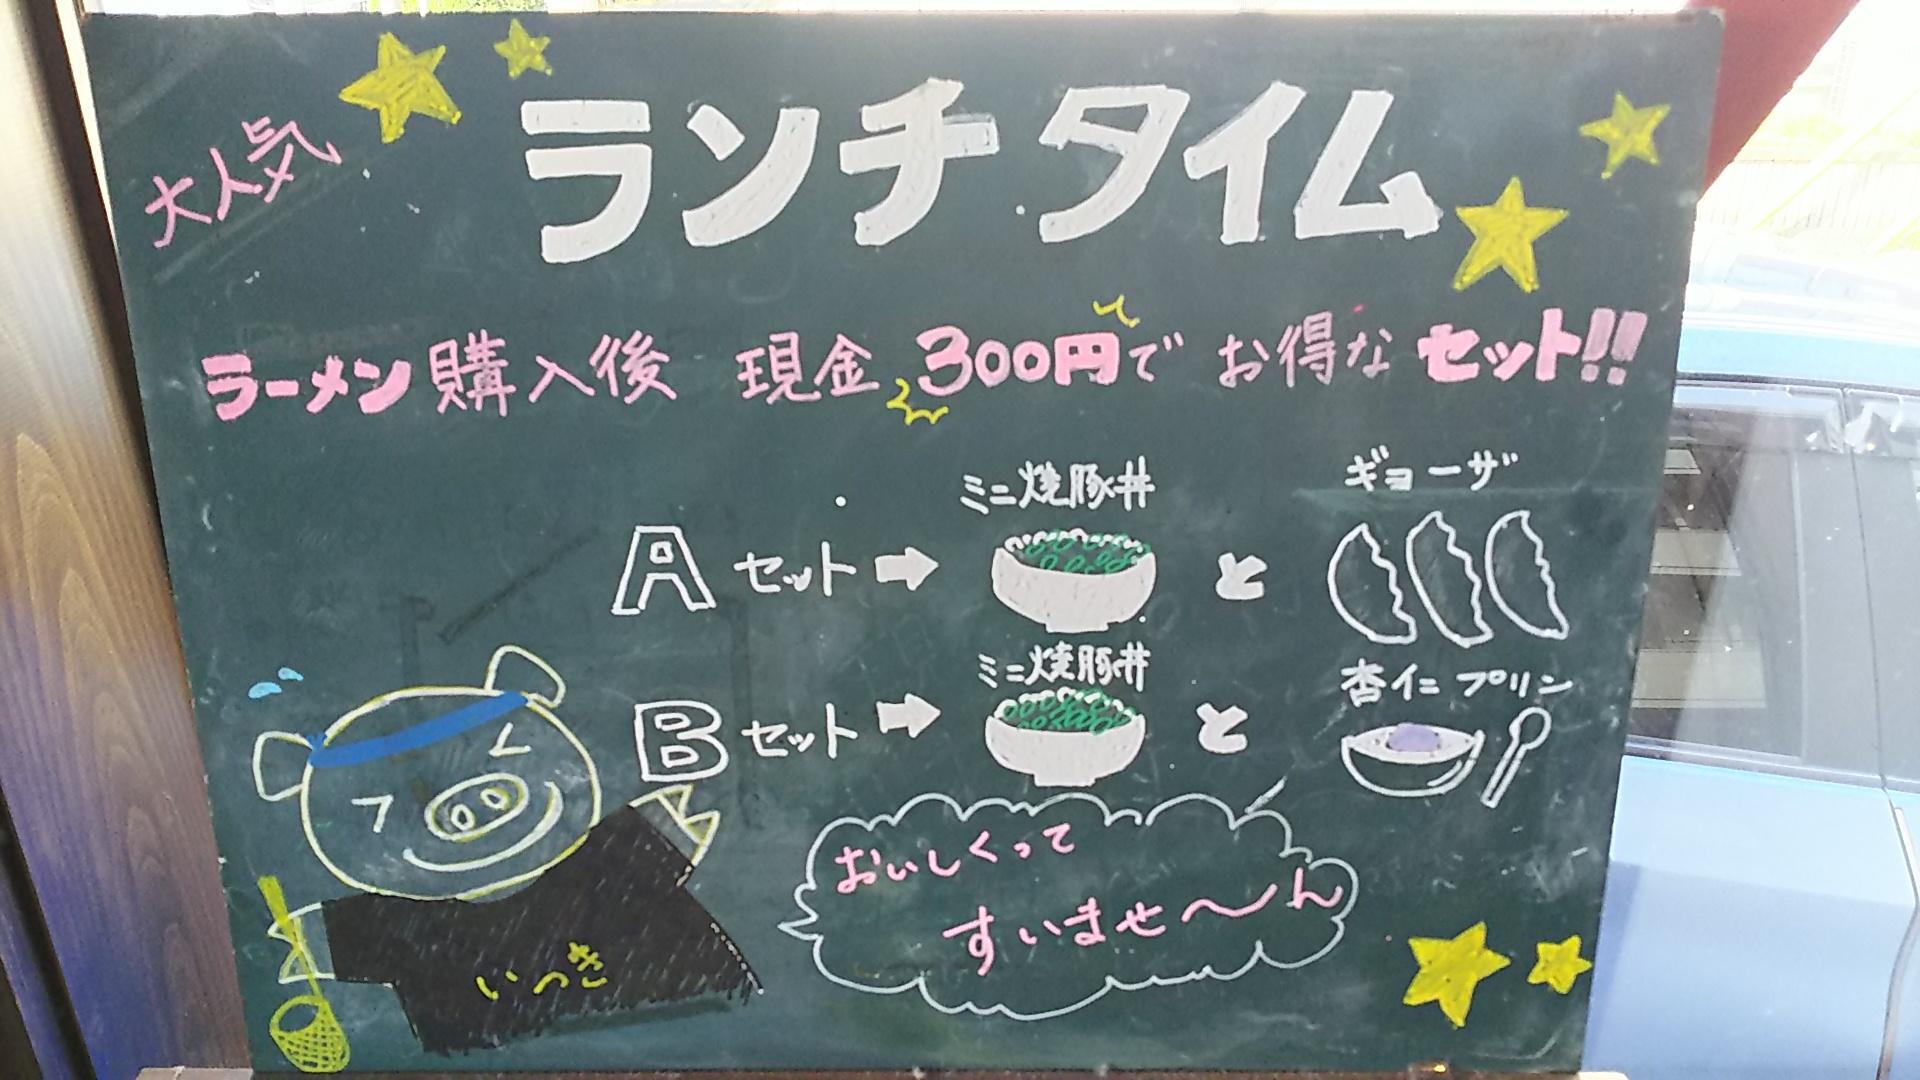 大人気
ランチタイム
ラーメン購入後 現金300円で お得なセット!!
ミニ焼豚丼 ギョーザ
Aセット➡ と
ミニ焼豚丼 杏仁プリン
Bセット➡ と
おいしくって
すいませ〜ん
いつき